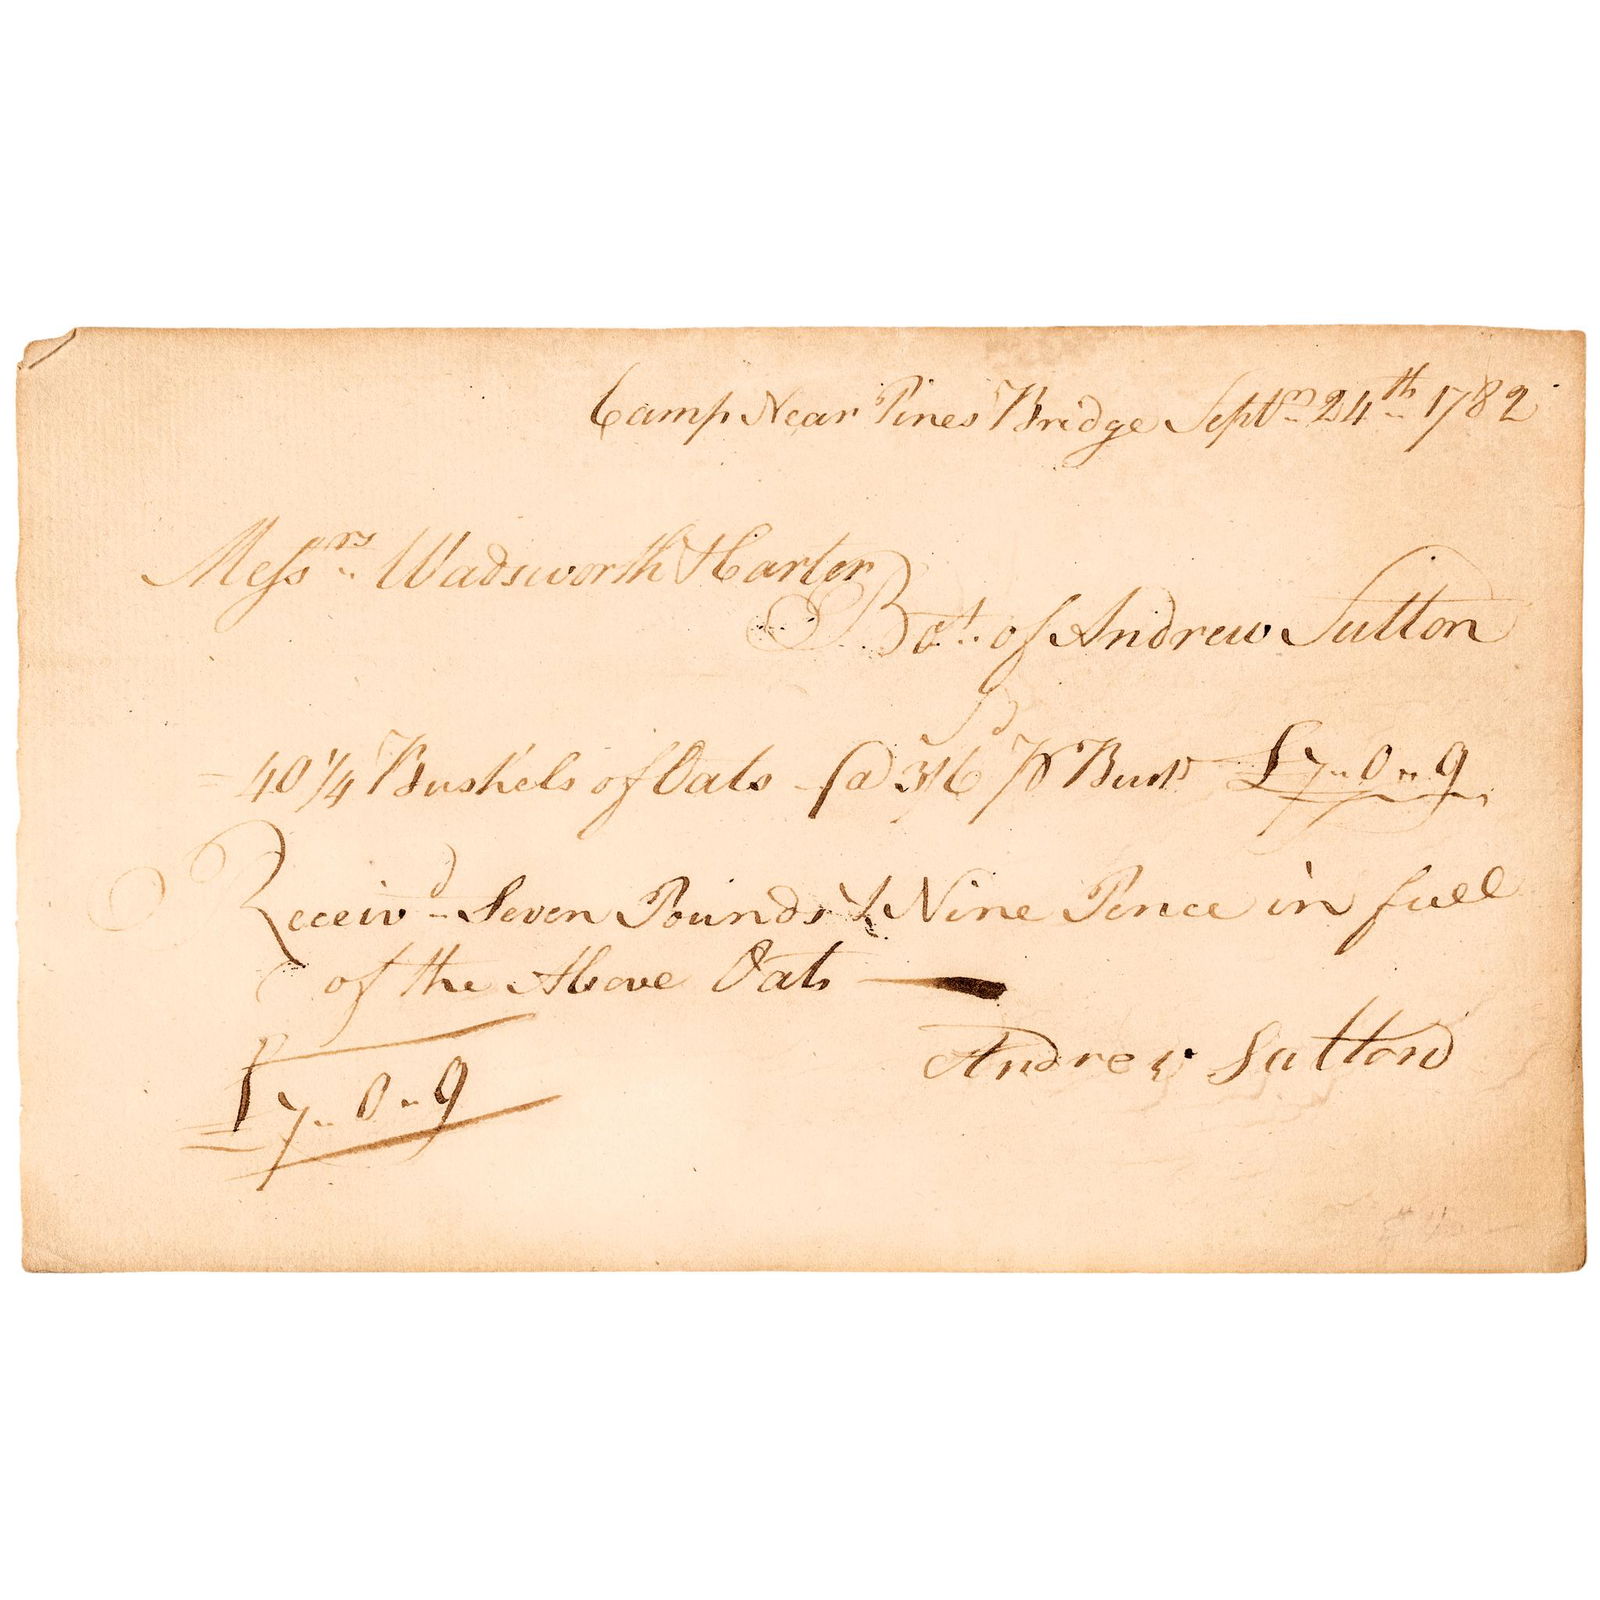 Camp Near Pines Bridge Septm 24th 1782
Messrs Wadsworth & Carter
Bot. of Andrew Sutton
40 1/4 Bushels of Oats @ 3/6 P Bush £7..0..9
Receivd Seven Pounds & Nine Pence in full
of the Above Oats
£7..0..9
Andrew Sutton